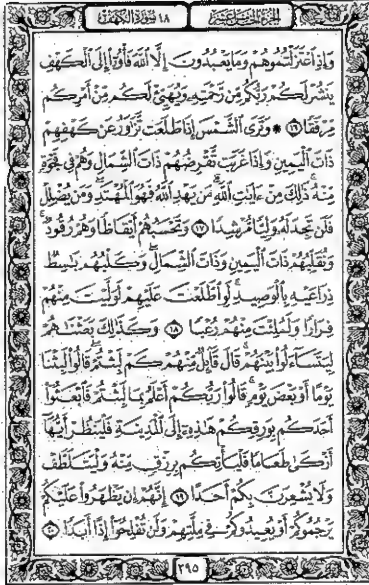 الجزء الخامس عشر ١٨ سورة الكهف
وَإِذِ ٱعْتَزَلْتُمُوهُمْ وَمَا يَعْبُدُونَ إِلَّا ٱللَّهَ فَأْوُۥٓا۟ إِلَى ٱلْكَهْفِ
يَنشُرْ لَكُمْ رَبُّكُم مِّن رَّحْمَتِهِۦ وَيُهَيِّئْ لَكُم مِّنْ أَمْرِكُم
مِّرْفَقًا ١٦ ۞ وَتَرَى ٱلشَّمْسَ إِذَا طَلَعَت تَّزَٰوَرُ عَن كَهْفِهِمْ
ذَاتَ ٱلْيَمِينِ وَإِذَا غَرَبَت تَّقْرِضُهُمْ ذَاتَ ٱلشِّمَالِ وَهُمْ فِى فَجْوَةٍ
مِّنْهُ ۚ ذَٰلِكَ مِنْ ءَايَٰتِ ٱللَّهِ ۗ مَن يَهْدِ ٱللَّهُ فَهُوَ ٱلْمُهْتَدِ ۖ وَمَن يُضْلِلْ
فَلَن تَجِدَ لَهُۥ وَلِيًّا مُّرْشِدًا ١٧ وَتَحْسَبُهُمْ أَيْقَاظًا وَهُمْ رُقُودٌ ۚ
وَنُقَلِّبُهُمْ ذَاتَ ٱلْيَمِينِ وَذَاتَ ٱلشِّمَالِ ۖ وَكَلْبُهُم بَٰسِطٌ
ذِرَاعَيْهِ بِٱلْوَصِيدِ ۚ لَوِ ٱطَّلَعْتَ عَلَيْهِمْ لَوَلَّيْتَ مِنْهُمْ
فِرَارًا وَلَمُلِئْتَ مِنْهُمْ رُعْبًا ١٨ وَكَذَٰلِكَ بَعَثْنَٰهُمْ
لِيَتَسَآءَلُوا۟ بَيْنَهُمْ ۚ قَالَ قَآئِلٌ مِّنْهُمْ كَمْ لَبِثْتُمْ ۖ قَالُوا۟ لَبِثْنَا
يَوْمًا أَوْ بَعْضَ يَوْمٍ ۚ قَالُوا۟ رَبُّكُمْ أَعْلَمُ بِمَا لَبِثْتُمْ فَٱبْعَثُوٓا۟
أَحَدَكُم بِوَرِقِكُمْ هَٰذِهِۦٓ إِلَى ٱلْمَدِينَةِ فَلْيَنظُرْ أَيُّهَآ
أَزْكَىٰ طَعَامًا فَلْيَأْتِكُم بِرِزْقٍ مِّنْهُ وَلْيَتَلَطَّفْ
وَلَا يُشْعِرَنَّ بِكُمْ أَحَدًا ١٩ إِنَّهُمْ إِن يَظْهَرُوا۟ عَلَيْكُمْ
يَرْجُمُوكُمْ أَوْ يُعِيدُوكُمْ فِى مِلَّتِهِمْ وَلَن تُفْلِحُوٓا۟ إِذًا أَبَدًا ٢٠
٢٩٥